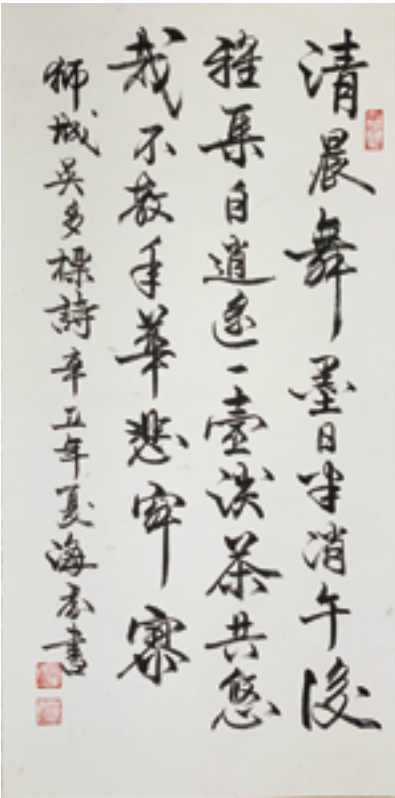 清晨舞墨日半消午後
雅集自逍遙一壺淡茶共悠
哉不教年華悲寂寥
獅城吳多標詩辛丑年夏海書